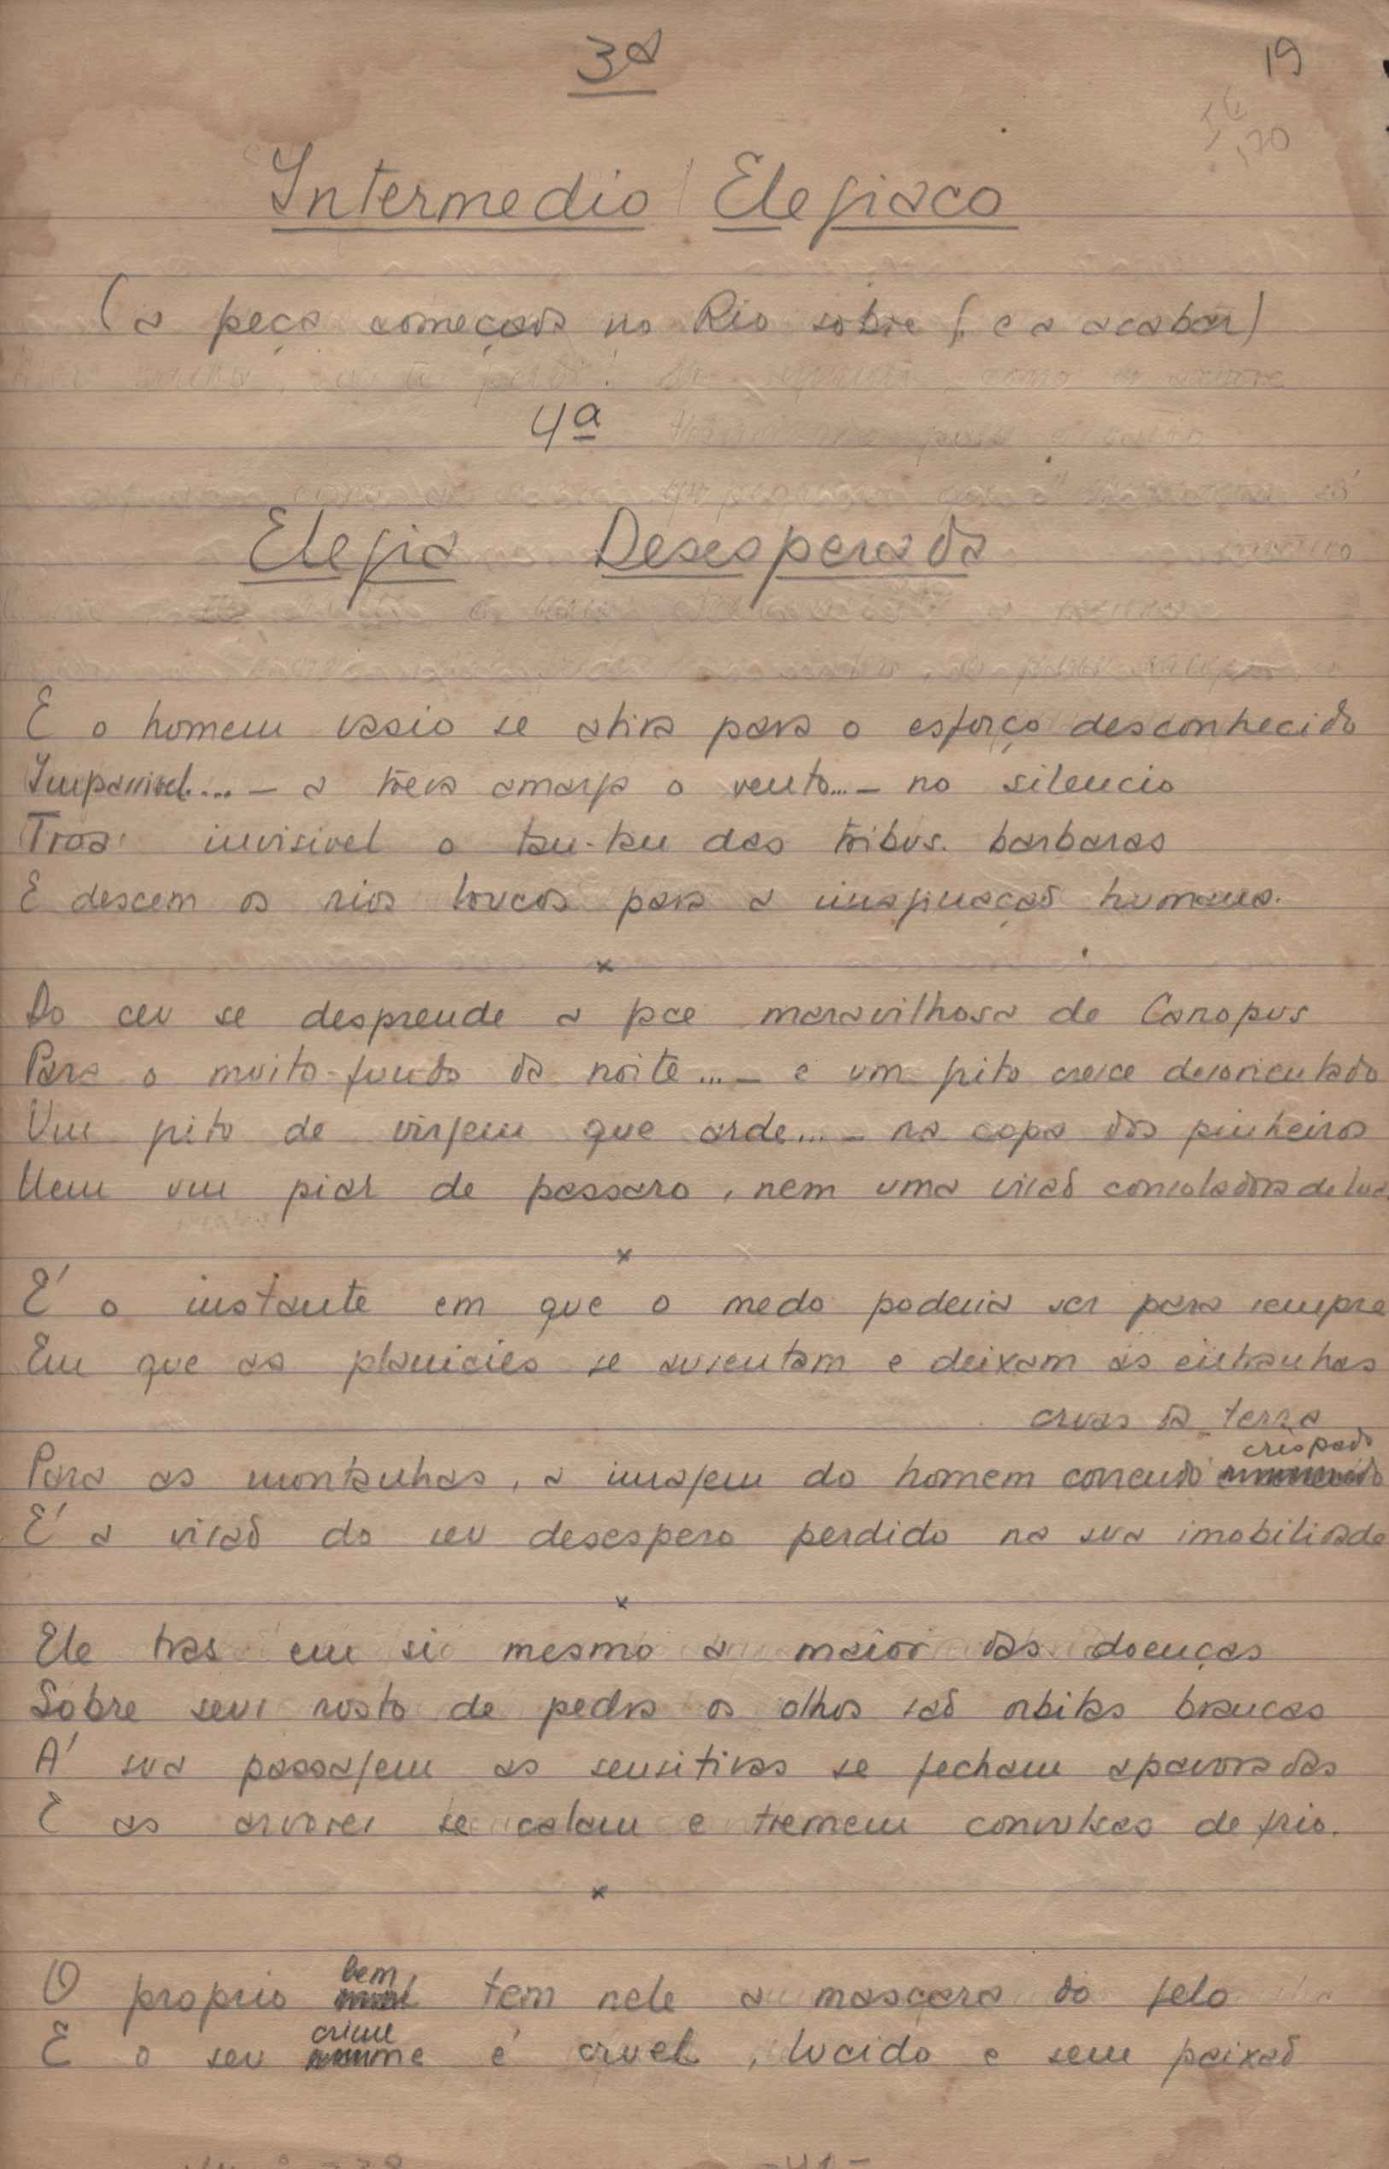 3ª
19
Intermedio Elegiaco
(a peça começada no Rio sobre f. e a acabar)
4ª
Elegia Desesperada
E o homem vasio se atira para o esforço desconhecido
Impassivel... – a treva amarga o vento... – no silencio
Troa invisivel o tan-tan das tribus barbaras
E descem os rios loucos para a imaginação humana.
x
Do ceu se desprende a face maravilhosa de Canopus
Para o muito-fundo da noite... – e um grito cresce desorientado
Um grito de virgem que arde... – na copa dos pinheiros
Nem um piar de passaro, nem uma visão consoladora de lua.
x
É o instante em que o medo poderia ser para sempre
Em que as planicies se ausentam e deixam as entranhas
cruas da terra
Para as montanhas, a imagem do homem correndo crispado
É a visão do seu desespero perdido na sua imobilidade
x
Ele tras em si mesmo a maior das doenças
Sobre seu rosto de pedra os olhos são orbitas brancas
Á sua passagem as sensitivas se fecham apavoradas
E as arvores se calam e tremem convulsas de frio.
x
O proprio bem tem nele a mascara do gelo
E o seu crime é cruel, lucido e sem paixão